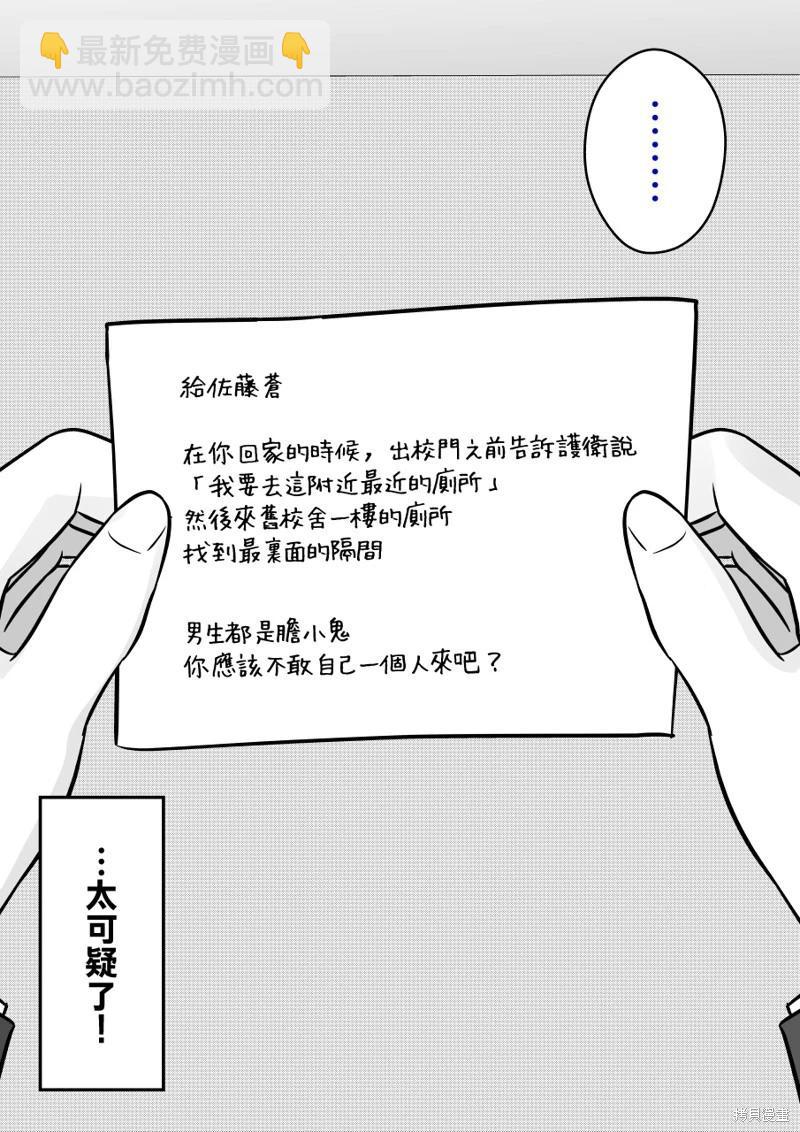 👇最新免費漫画👇
www.baozimh.com
………
給佐藤蒼
在你回家的時候，出校門之前告訴護衛說
「我要去這附近最近的廁所」
然後來舊校舍一樓的廁所
找到最裏面的隔間
男生都是膽小鬼
你應該不敢自己一個人來吧？
…太可疑了！
拷貝漫畫